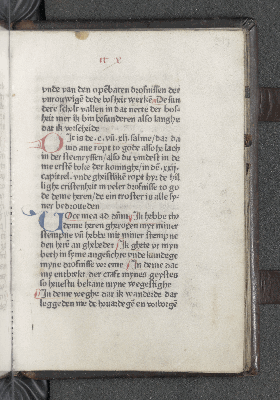 vnde van den openbaren drofnissen des
vnrouwigē dede bosheit werkē De sun
dere scholt vallen in dat nette der bos
heit mer ik bin besunderen also langhe
dat ik vorscheide
Dit is de .c. vn̄ .xli. salme / dar da
uid ane ropt to gode also he lach
in der steenryssen / also du vindest in de
me erste boke der koninghe / in dē .xxij.
capitel. vnde gheistlike ropt hyr de hil
lighe cristenheit in veler drofnisse to go
de deme heren / de ein troster is alle sy
ner bedroueden
VOce mea ad dūm Ik hebbe tho
deme heren gheropen met miner
stempne vn̄ hebbe mit miner stempne
den herē an ghebeden Ik ghete vt myn
beth in syme angesichte vnde kundege
myne drofnisse vor eme In deme dat
my entbrekt der craft mynes geystes
so heuestu bekant myne weghestighe
In deme weghe dar ik wanderde dar
legge den me de houardegē en vorborgē